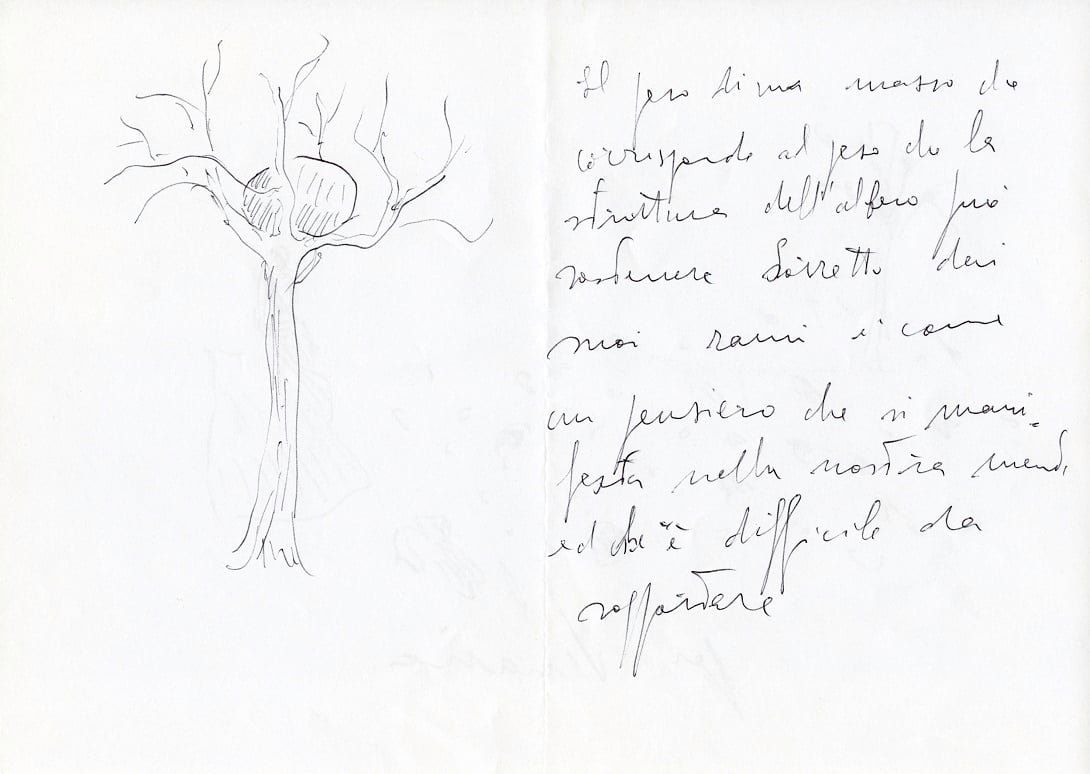 Il peso di un masso che
corrisponde al peso che la
struttura dell'albero può
sostenere sorretto dai
suoi rami è come
un pensiero che si mani=
festa nella nostra mente
ed che è difficile da
sopportare